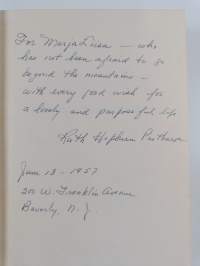 For Marja Liisa — who
has not been afraid to go
beyond the mountains —
with every good wish for
a lovely and purposeful life
Ruth Hepburn
June 13 - 1957
202 W. Franklin Avenue
Beverly, N. J.